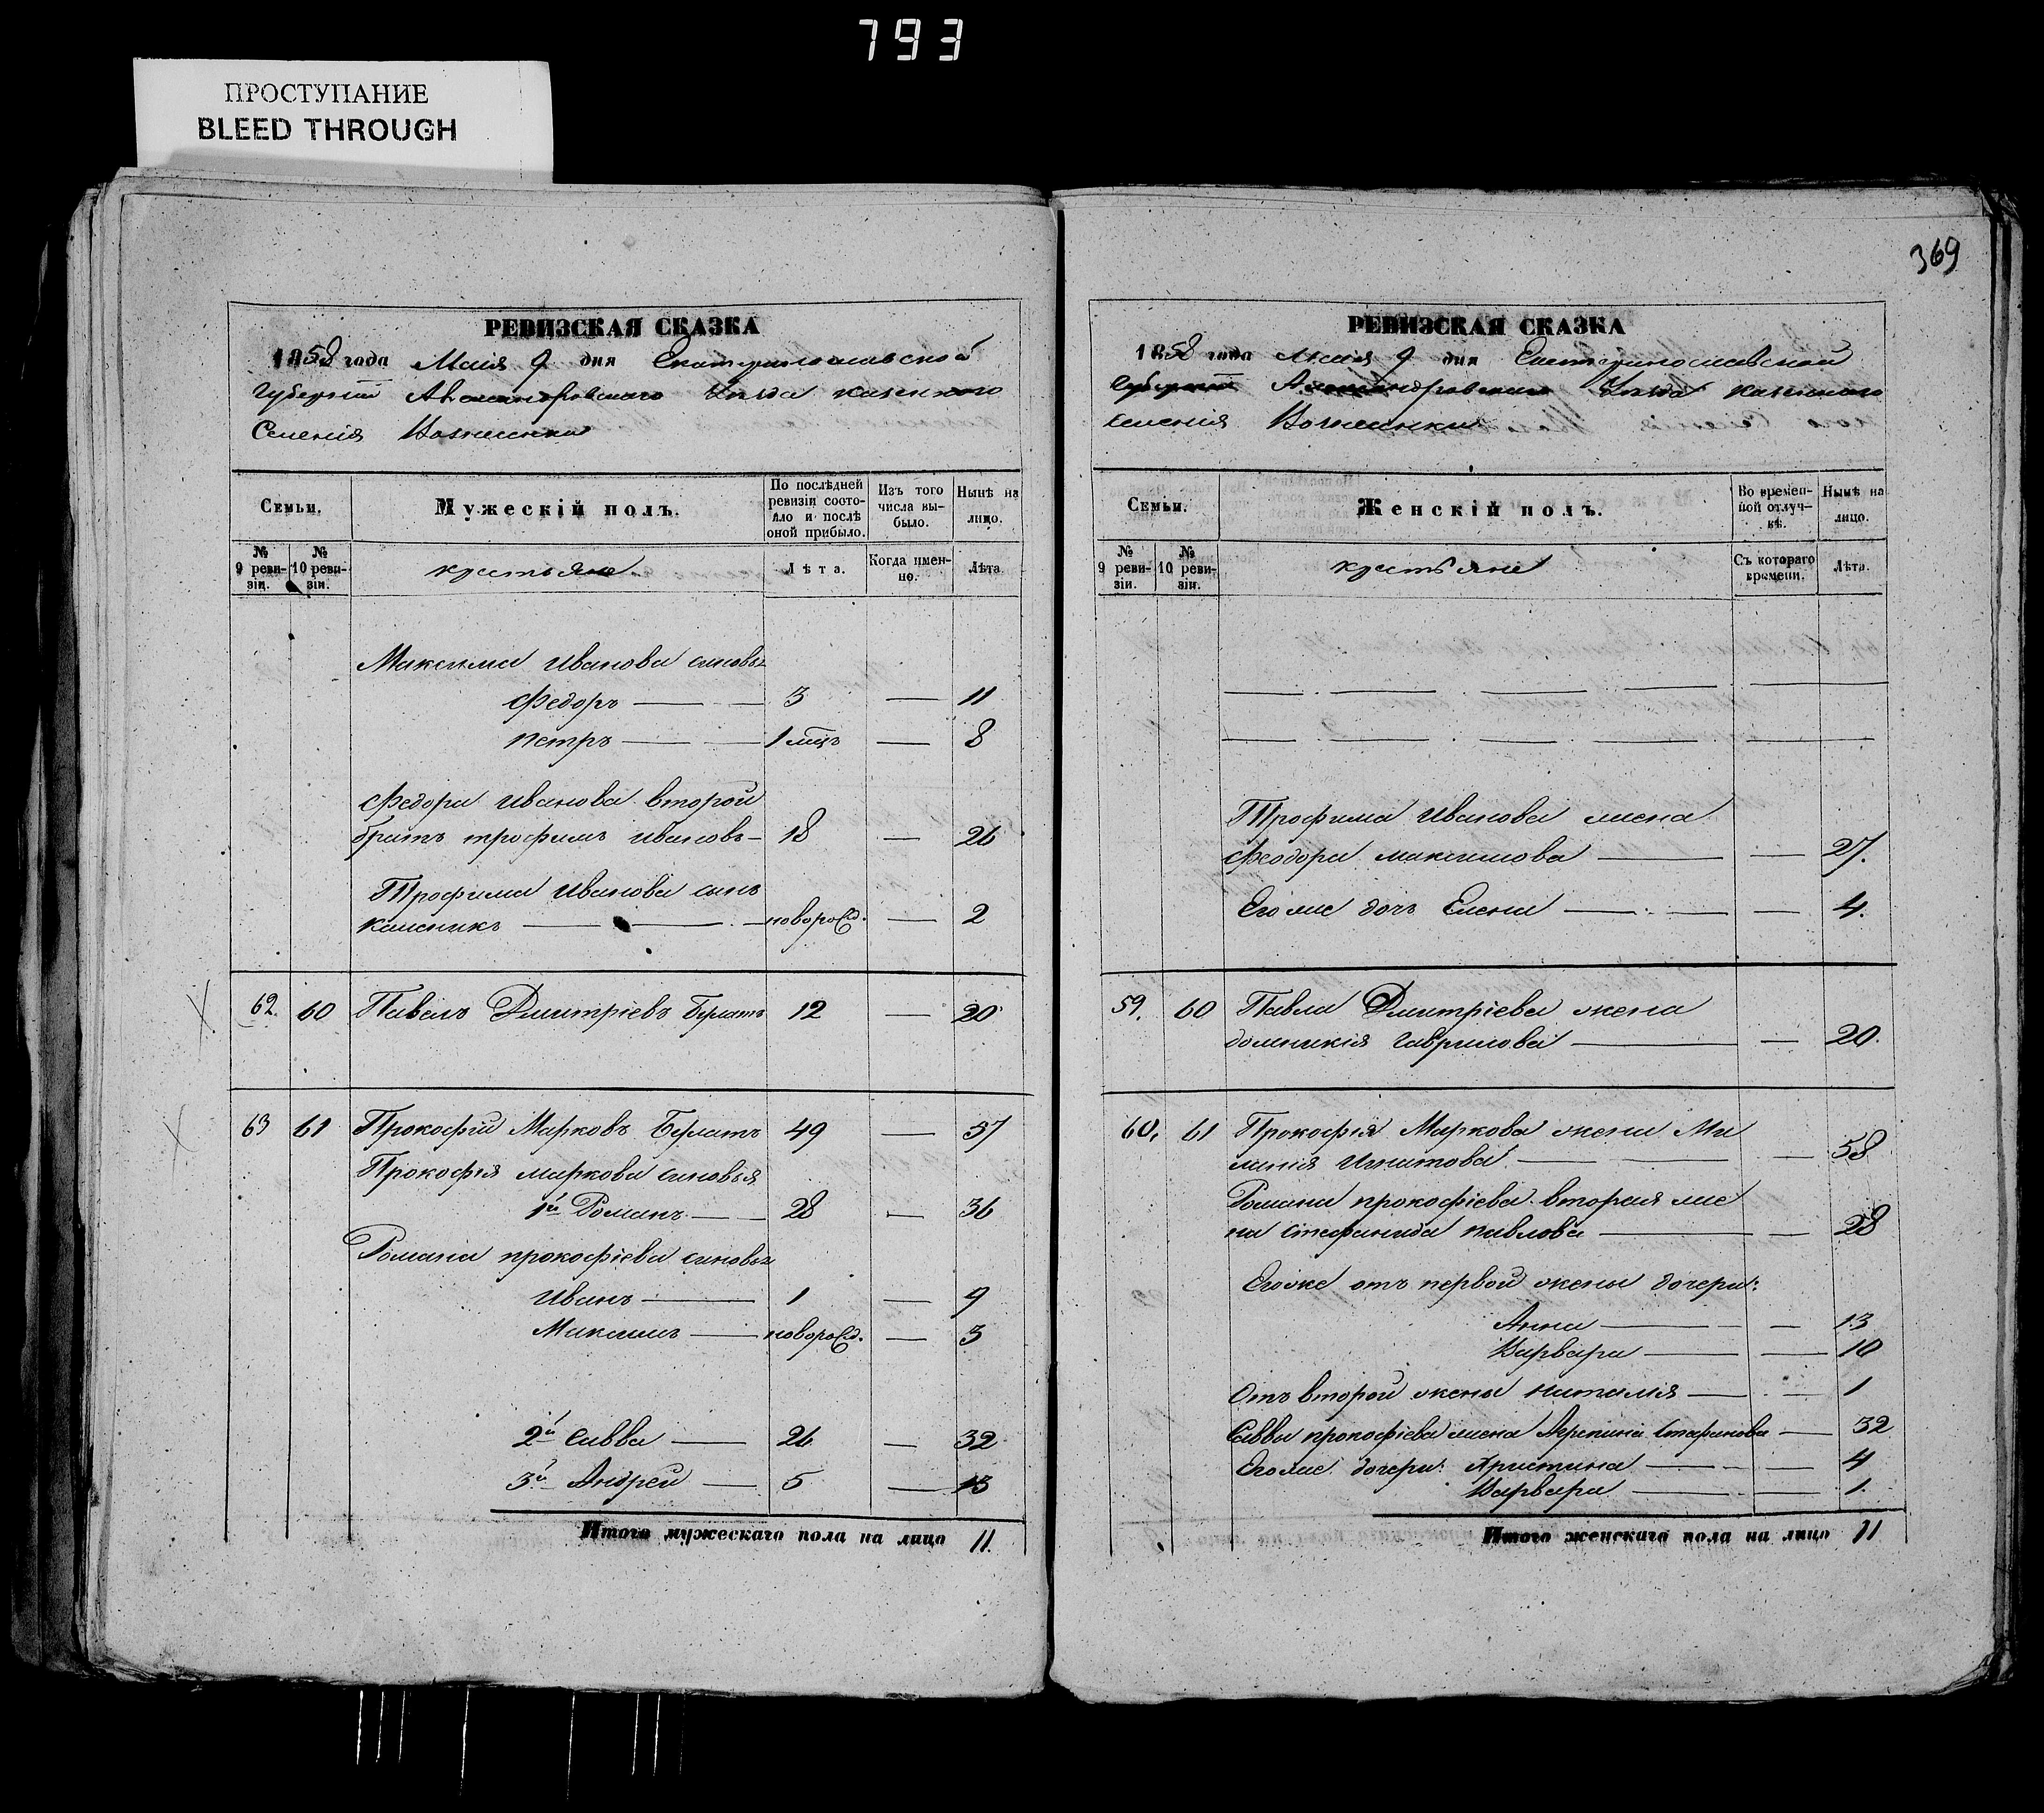 793
ПРОСТУПАНИЕ
BLEED THROUGH
РЕВИЗСКАЯ СКАЗКА
1858 года Маія 9 дня Екатеринославской
Губерніи Александровского Уезда казенного
Селенія Вознесенки
Семьи.
Мужескій полъ.
По послѣдней ревизіи состояло и послѣ оной прибыло.
Изъ того числа выбыло.
Нынѣ на лицо.
№ 9 ревизіи.
№ 10 ревизіи.
крестьяне
Лѣта.
Когда именно.
Лѣта.
Максима Иванова синовья
Федоръ — 3 — 11
Петръ — 1 мцъ — 8
Федора Иванова второй
братъ трофимъ ивановъ — 18 — 26
Трофима Иванова синъ
каленикъ — новорожд. — 2
62. 60 Павелъ Дмитріевъ Булатъ 12 — 20
63 61 Прокофій Марковъ Булатъ 49 — 57
Прокофія маркова синовья
1й Романъ — 28 — 36
Романа прокофіева синовья
Иванъ — 1 — 9
Максимъ — новорожд. — 3
2й Савва — 24 — 32
3й Андрей — 5 — 13
Итого мужескаго пола на лицо 11.
369
РЕВИЗСКАЯ СКАЗКА
1858 года Маія 9 дня Екатеринославской
Губерніи Александровского Уезда казенного
селенія Вознесенки
Семьи.
Женскій полъ.
Во временной отлучкѣ.
Нынѣ на лицо.
№ 9 ревизіи.
№ 10 ревизіи.
крестьяне
Съ котораго времени.
Лѣта.
Трофима Иванова жена
Феодора максимова — 27.
Его же дочь Елена — 4.
59. 60 Павла Дмитріева жена
домникія гаврилова — 20.
60. 61 Прокофія Маркова жена Ме
ланія Игнатова — 58
Романа прокофіева вторая же
на стефанида павлова — 28
Егоже отъ первой жены дочери:
Анна — 13
Варвара — 10
Отъ второй жены наталія — 1
Саввы прокофіева жена Агрепина Стефанова — 32
Его же дочери: Христина — 4
Варвара — 1.
Итого женскаго пола на лицо 11